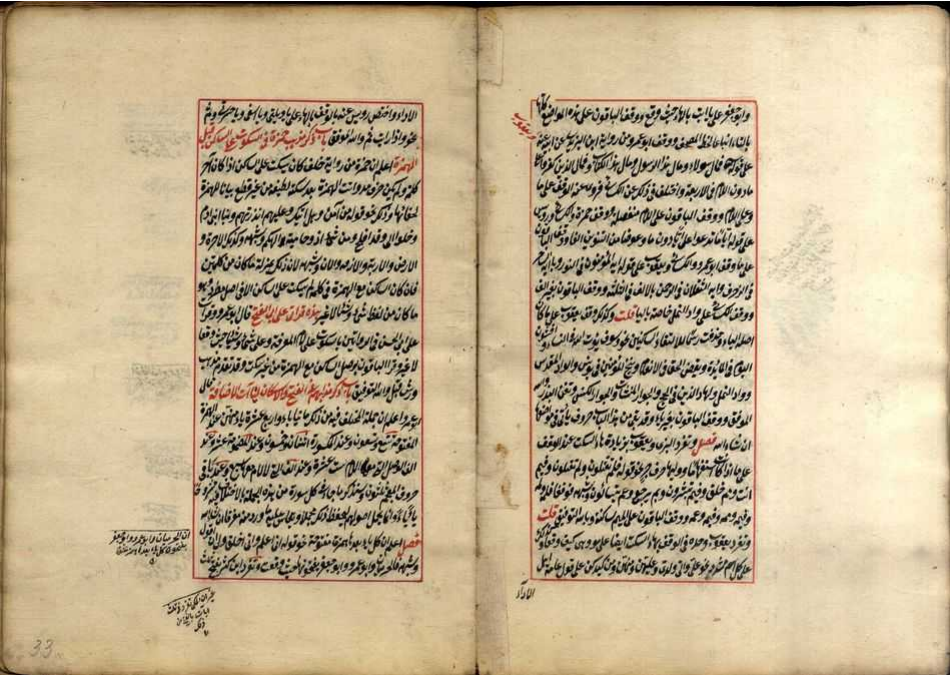 وابو جعفر على يا ابت بالهاء حيث وقع ووقف الباقون على هذه المواضع كلها
ويعقوب
بالتاء اتباعا لخط المصحف ووقف ابو عمرو من رواية عن ابيه عنه
على قوله فمال هولاء ومال هذا الرسول ومال هذا الكتاب وفمال الذين كفروا على
ما دون اللام في الاربعة واختلف في ذلك عن الكسائي فروي عنه الوقف على ما
وعلى اللام ووقف الباقون على اللام منفصلة ووقف حمزة والكسائي ورويس
على قوله ايا ما تدعوا على ايا دون ما وعوضا من التنوين الفا ووقف الباقون
على ما ووقف ابو عمرو والكسائي ويعقوب على قوله ايه المؤمنون في النور ويا ايه الساحر
في الزخرف وايه الثقلان في الرحمن بالالف في الثلثة ووقف الباقون بغير الف
ووقف الكسائي على واد النمل خاصة بالياء قلت وكذلك وقف يعقوب على ما كان
اصله الياء وحذفت رسما لالتقاء الساكنين نحو وسوف يؤت الله في النساء واخشون
اليوم في المائدة ويقض الحق في الانعام وننج المؤمنين في يونس والواد المقدس
وواد النمل ولهاد الذين في الحج والجوار الكنس وتغن النذر والله
الموفق ووقف الباقون بغير ياء وقد بقي من هذا الباب حروف ياتي في مواضعها
ان شاء الله فصل وتفرد البزي ويعقوب بزيادة هاء السكت عند الوقف
على ما اذا كانت استفهاما ووليها حرف جر نحو قوله فلم تقتلون ولم تقولون وفيم
انت ومم خلق وفبم تبشرون وبم يرجع وعم يتساءلون وشبهه فوقفا فلمه ولمه
وفيمه وممه وفبمه وعمه ووقف الباقون على الميم ساكنة وبالله التوفيق قلت
وتفرد يعقوب وحده في الوقف بهاء السكت ايضا على هو وهي كيف وقعا و
على كل اسم مشدد نحو علي والي ولدي وعليهن ومنهن ومن كيدكن على قول عامة اهل
الاداء
الاداء واختص رويس عنه بالوقف بالهاء على يا ويلتى ويا اسفى ويا حسرتى وثم
نحو واذا رايت ثم والله الموفق باب ذكر مذهب حمزة في السكوت على الساكن قبل
الهمزة اعلم ان حمزة من رواية خلف كان يسكت على الساكن اذا كان آخر
كلمة ولم يكن حرف مد واتت الهمزة بعده سكتة لطيفة من غير قطع بيانا للهمزة
لخفائها وذلك نحو قوله من آمن وهل اتيك وعليهم ءانذرتهم ونبا ابني آدم
وخلوا الى وقد افلح ومن شيء اذ وحامية والهيكم وشبهه وكذلك الآخرة و
الارض والازفة والان وشبهه لان ذلك بمنزلة ما كان من كلمتين
فان كان الساكن مع الهمزة في كلمة لم يسكت على الساكن الا في اصل مطرد وهو
ما كان من لفظ شيء وشيئا لا غير بهذا قرات على ابي الفتح قال ابو عمرو وقرات
على ابي الحسن في الروايتين بالسكوت على لام المعرفة وعلى شيء وشيئا حيث وقعا
لا غير وقرا الباقون بوصل الساكن مع الهمزة من غير سكت وقد تقدم مذهب
ورش قبل والله التوفيق باب ذكر مذاهبهم في الفتح والاسكان لياءات الاضافة قال
ابو عمرو اعلم ان جملة المختلف فيه من ذلك مائتا ياء واربع عشرة ياء منهن عند الهمزة
المفتوحة تسع وتسعون وعند المكسورة اثنتان وخمسون وعند المضمومة عشر وعند
الف الوصل التي معها اللام ست عشرة وعند الف التي لا لام معها سبع وعند باقي
حروف المعجم ثلثون وسنذكر ما جاء في كل سورة من هذه الجملة
ياء ياء وانما نجمل اصولهم ليحفظ ذلك
فصل اعلم ان كل ياء بعدها همزة مفتوحة نحو قوله اني اعلم واني اخلق ولي ان اقول
وشبهه فالحرميان وابو عمرو وابو جعفر يفتحونها حيث وقعت وتفرد ابن كثير بفتح
33